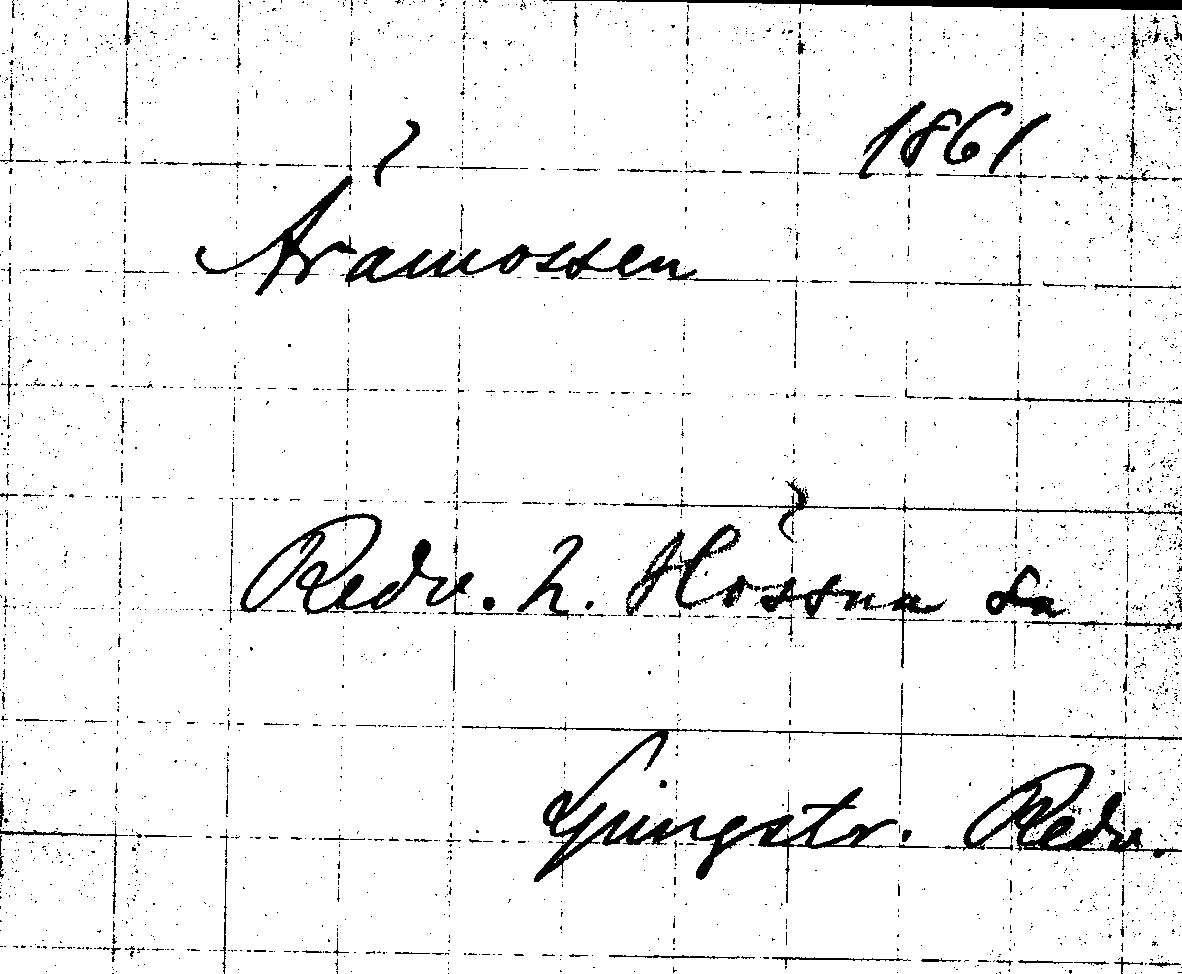 1861
Åramossen
Redv. h. Hössna sn
Ljungstr. Redv.